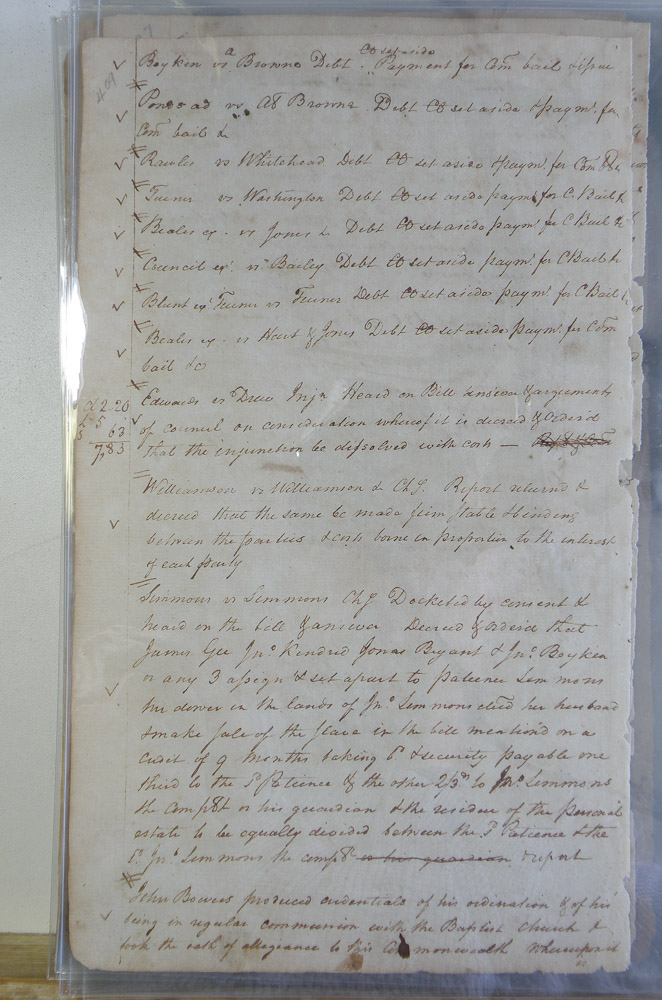 Boyken vs a Browne Debt CO set aside Payment for Com bail & issue
vs AS Browne Debt CO set aside & paymt. for
Com bail &
Rawles vs Whitehead Debt CO set aside & paymt. for Com B &c
Turner vs Washington Debt CO set aside paymt for C. Bail &
Beales ex. vs Jones & Debt CO set aside paymt. for C Bail &c
Council exr. vs Bailey Debt CO set aside paymt. for C Bail &
Blunt exr Turner vs Turner Debt CO set aside paymt. for C Bail
Beales ex. vs Hart & Jones Debt CO set aside paymt. for Com
bail &c
Edwards vs Drew Injn Heard on Bill answer & arguments
of council on consideration whereof it is decreed & Orderd
that the injunction be dissolved with costs —
2.20
5
63
7,83
Williamson vs Williamson & Chy. Report returnd &
decreed that the same be made firm stable & binding
between the parties & costs borne in proportion to the interest
of each party
Simmons vs Simmons Chy Docketed by consent &
heard on the bill & answer Decreed & orderd that
James Gee Jno. Kindred Jonas Bryant & Jno. Boyken
or any 3 assign & set apart to patience Simmons
her dower in the lands of Jno. Simmons her husband
& make sale of the slave in the bill mention'd on a
credit of 9 Months taking bd & security payable one
third to the sd. Patience & the other 2/3ds to Jno. Simmons
the Complt or his guardian & the residue of the personal
estate to be equally divided between the sd Patience & the
sd. Jno. Simmons the complt or his guardian & report
John Bowers produced credentials of his ordination & of his
being in regular communion with the Baptist church &
took the oath of allegiance to this Commonwealth whereupon it
is